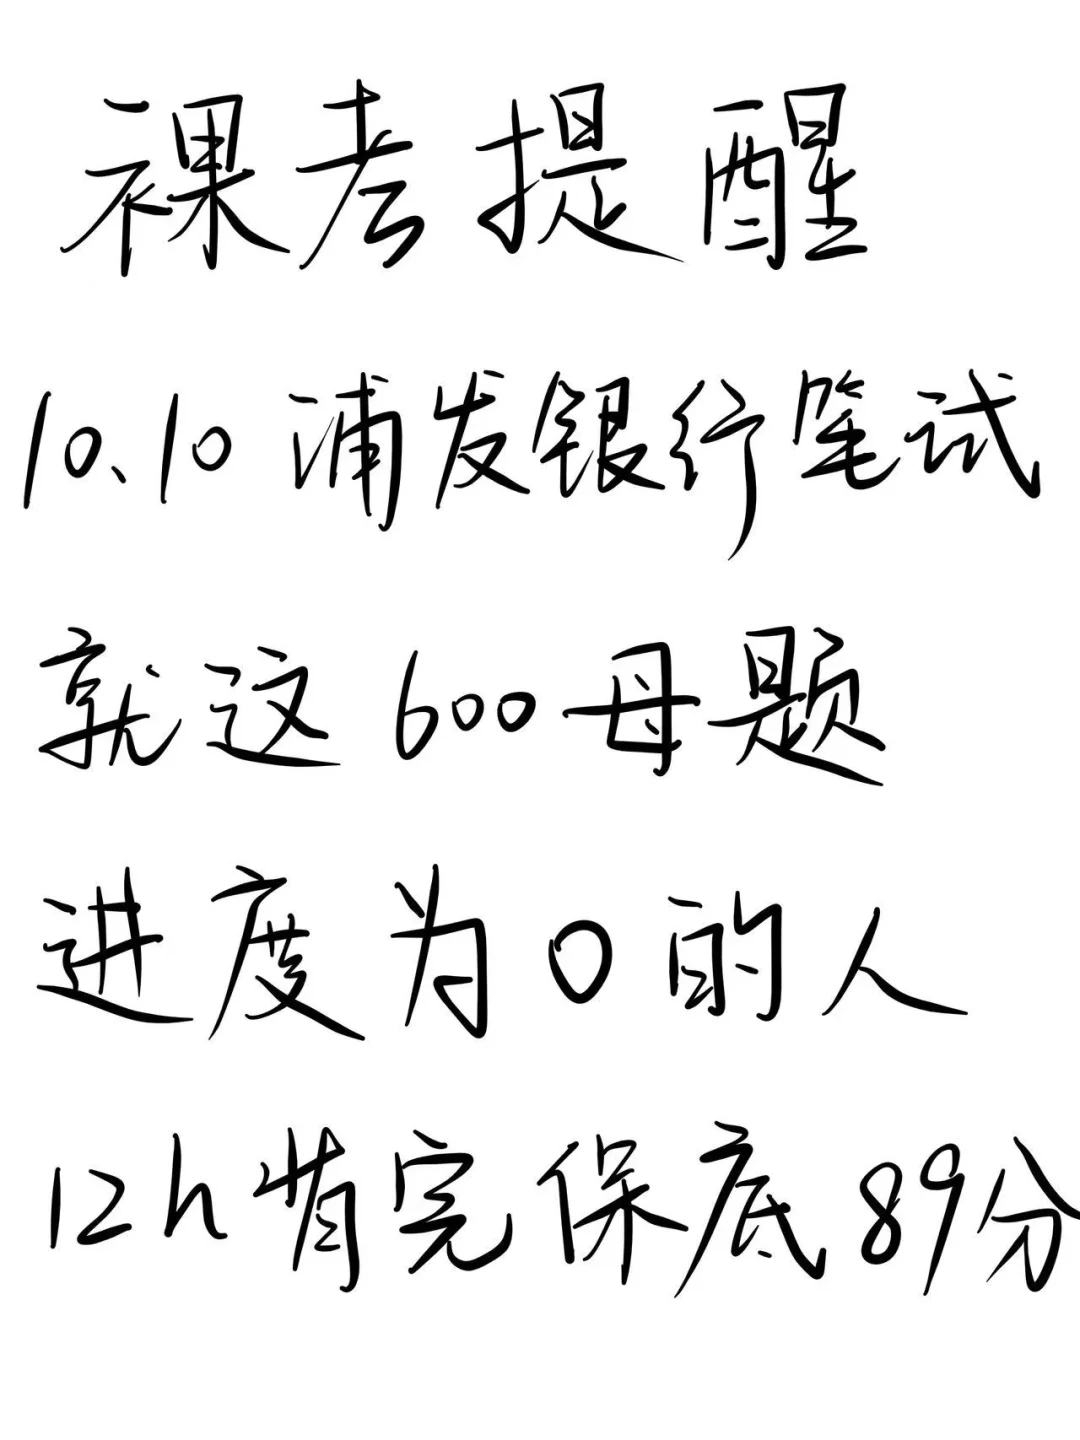 裸考提醒
10.10浦发银行笔试
就这600母题
进度为0的人
12h背完保底89分